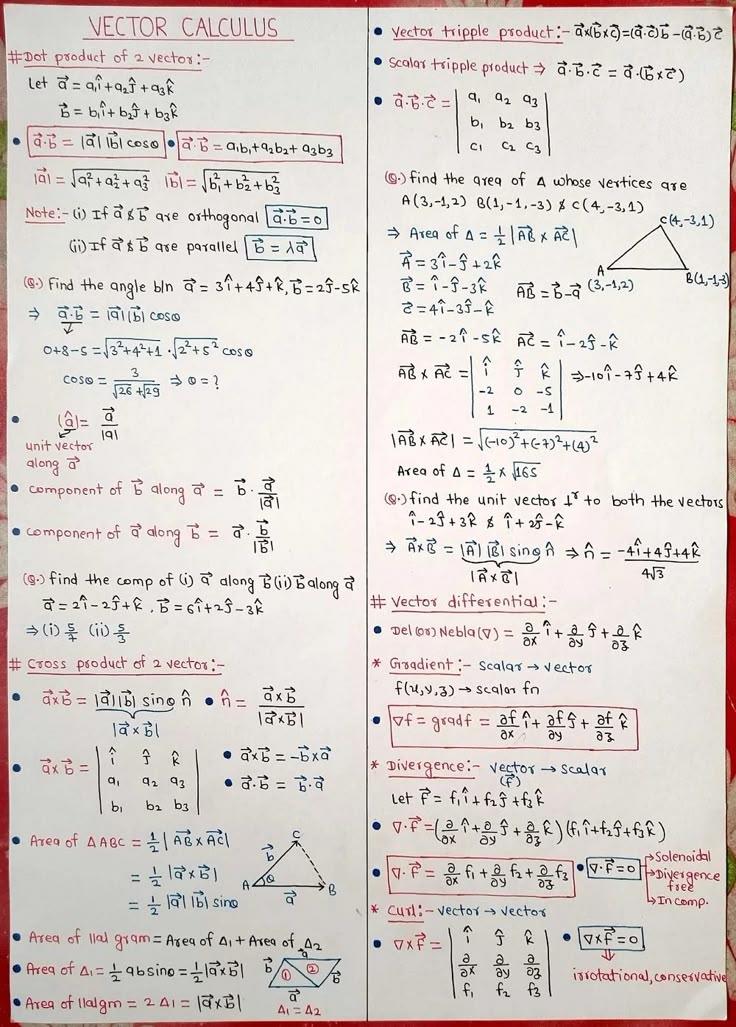 VECTOR CALCULUS
# Dot product of 2 vector:-
Let a⃗ = a₁î+a₂ĵ+a₃k̂
b⃗ = b₁î+b₂ĵ+b₃k̂
• a⃗·b⃗ = |a⃗| |b⃗| cosθ • a⃗·b⃗ = a₁b₁+a₂b₂+a₃b₃
|a⃗| = √(a₁²+a₂²+a₃²) |b⃗| = √(b₁²+b₂²+b₃²)
Note:- (i) If a⃗ & b⃗ are orthogonal a⃗·b⃗=0
(ii) If a⃗ & b⃗ are parallel b⃗ = λa⃗
(Q.) Find the angle b/n a⃗ = 3î+4ĵ+k̂, b⃗ = 2ĵ-5k̂
⇒ a⃗·b⃗ = |a⃗||b⃗| cosθ
0+8-5 = √(3²+4²+1) · √(2²+5²) cosθ
cosθ = 3/(√26 + √29) ⇒ θ = ?
• |â| = a⃗/|a|
unit vector
along a⃗
• component of b⃗ along a⃗ = b⃗ · a⃗/|a⃗|
• component of a⃗ along b⃗ = a⃗ · b⃗/|b⃗|
(Q.) find the comp of (i) a⃗ along b⃗ (ii) b⃗ along a⃗
a⃗ = 2î-2ĵ+k̂, b⃗ = 6î+2ĵ-3k̂
⇒ (i) 5/7 (ii) 5/3
# Cross product of 2 vector:-
• a⃗×b⃗ = |a⃗||b⃗| sinθ n̂ • n̂ = a⃗×b⃗/|a⃗×b⃗|
|a⃗×b⃗|
• a⃗×b⃗ = | î ĵ k̂ | • a⃗×b⃗ = -b⃗×a⃗
| a₁ a₂ a₃ | • a⃗·b⃗ = b⃗·a⃗
| b₁ b₂ b₃ |
• Area of ΔABC = 1/2 | AB⃗ × AC⃗ |
= 1/2 | a⃗×b⃗ |
= 1/2 |a⃗| |b⃗| sinθ
C
b⃗
A θ B
a⃗
• Area of llal gram = Area of Δ₁ + Area of Δ₂
• Area of Δ₁ = 1/2 ab sinθ = 1/2 |a⃗×b⃗|
• Area of llalgm = 2 Δ₁ = |a⃗×b⃗|
a
b⃗ ① ② b⃗
a⃗
Δ₁ = Δ₂
• Vector tripple product:- a⃗×(b⃗×c⃗)=(a⃗·c⃗)b⃗-(a⃗·b⃗)c⃗
• Scalar tripple product ⇒ a⃗·b⃗·c⃗ = a⃗·(b⃗×c⃗)
• a⃗·b⃗·c⃗ = | a₁ a₂ a₃ |
| b₁ b₂ b₃ |
| c₁ c₂ c₃ |
(Q.) find the area of Δ whose vertices are
A(3,-1,2) B(1,-1,-3) & C(4,-3,1)
⇒ Area of Δ = 1/2 | AB⃗ × AC⃗ |
A⃗ = 3î-ĵ+2k̂
B⃗ = î-ĵ-3k̂ AB⃗ = b⃗-a⃗
c⃗ = 4î-3ĵ-k̂
C(4,-3,1)
A (3,-1,2) B(1,-1,-3)
AB⃗ = -2î-5k̂ AC⃗ = î-2ĵ-k̂
AB⃗ × AC⃗ = | î ĵ k̂ | ⇒ -10î-7ĵ+4k̂
| -2 0 -5 |
| 1 -2 -1 |
|AB⃗ × AC⃗| = √((-10)²+(-7)²+(4)²)
Area of Δ = 1/2 × √165
(Q.) find the unit vector ⊥ʳ to both the vectors
î-2ĵ+3k̂ & î+2ĵ-k̂
⇒ A⃗×B⃗ = |A⃗| |B⃗| sinθ n̂ ⇒ n̂ = (-4î+4ĵ+4k̂)/4√3
|A⃗×B⃗|
# Vector differential:-
• Del (or) Nebla (∇) = ∂/∂x î + ∂/∂y ĵ + ∂/∂z k̂
* Gradient:- Scalar → vector
f(x,y,z) → scalar fn
• ∇f = gradf = ∂f/∂x î + ∂f/∂y ĵ + ∂f/∂z k̂
* Divergence:- vector → scalar
(f⃗)
Let f⃗ = f₁î+f₂ĵ+f₃k̂
• ∇·f⃗ = (∂/∂x î + ∂/∂y ĵ + ∂/∂z k̂) (f₁î+f₂ĵ+f₃k̂)
• ∇·f⃗ = ∂/∂x f₁ + ∂/∂y f₂ + ∂/∂z f₃ • ∇·f⃗=0 → Solenoidal
→ Divergence free
→ In comp.
* Curl:- vector → vector
• ∇×f⃗ = | î ĵ k̂ | • ∇×f⃗=0
| ∂/∂x ∂/∂y ∂/∂z |
| f₁ f₂ f₃ |
irrotational, conservative